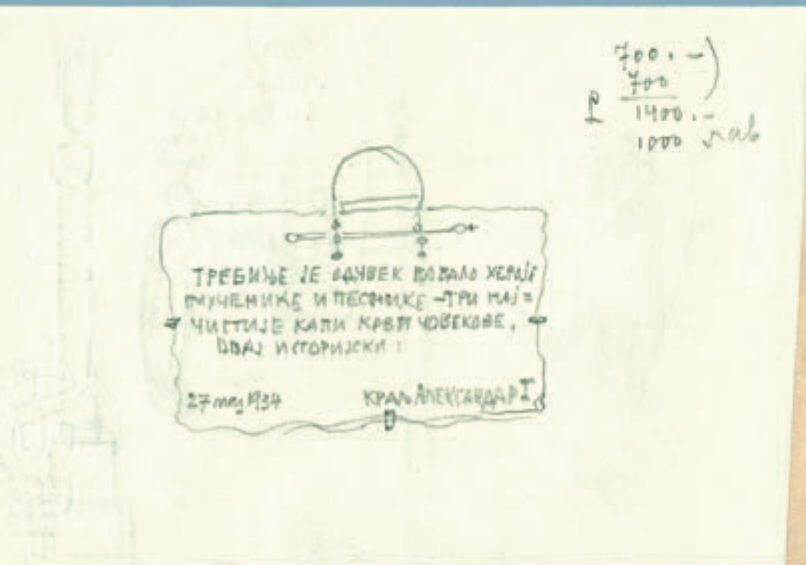 700.-)
700
1400.-
1000
ТРЕБИЊЕ ЈЕ ОДУВЕК ХЕРОЈЕ
МУЧЕНИКЕ И ПЕСНИКЕ - ТРИ НАЈ=
ЧИСТИЈЕ КАПИ КРВИ ЧОВЕКОВЕ,
ИСТОРИЈСКИ :
27 мај 1934 КРАЉ АЛЕКСАНДАР I